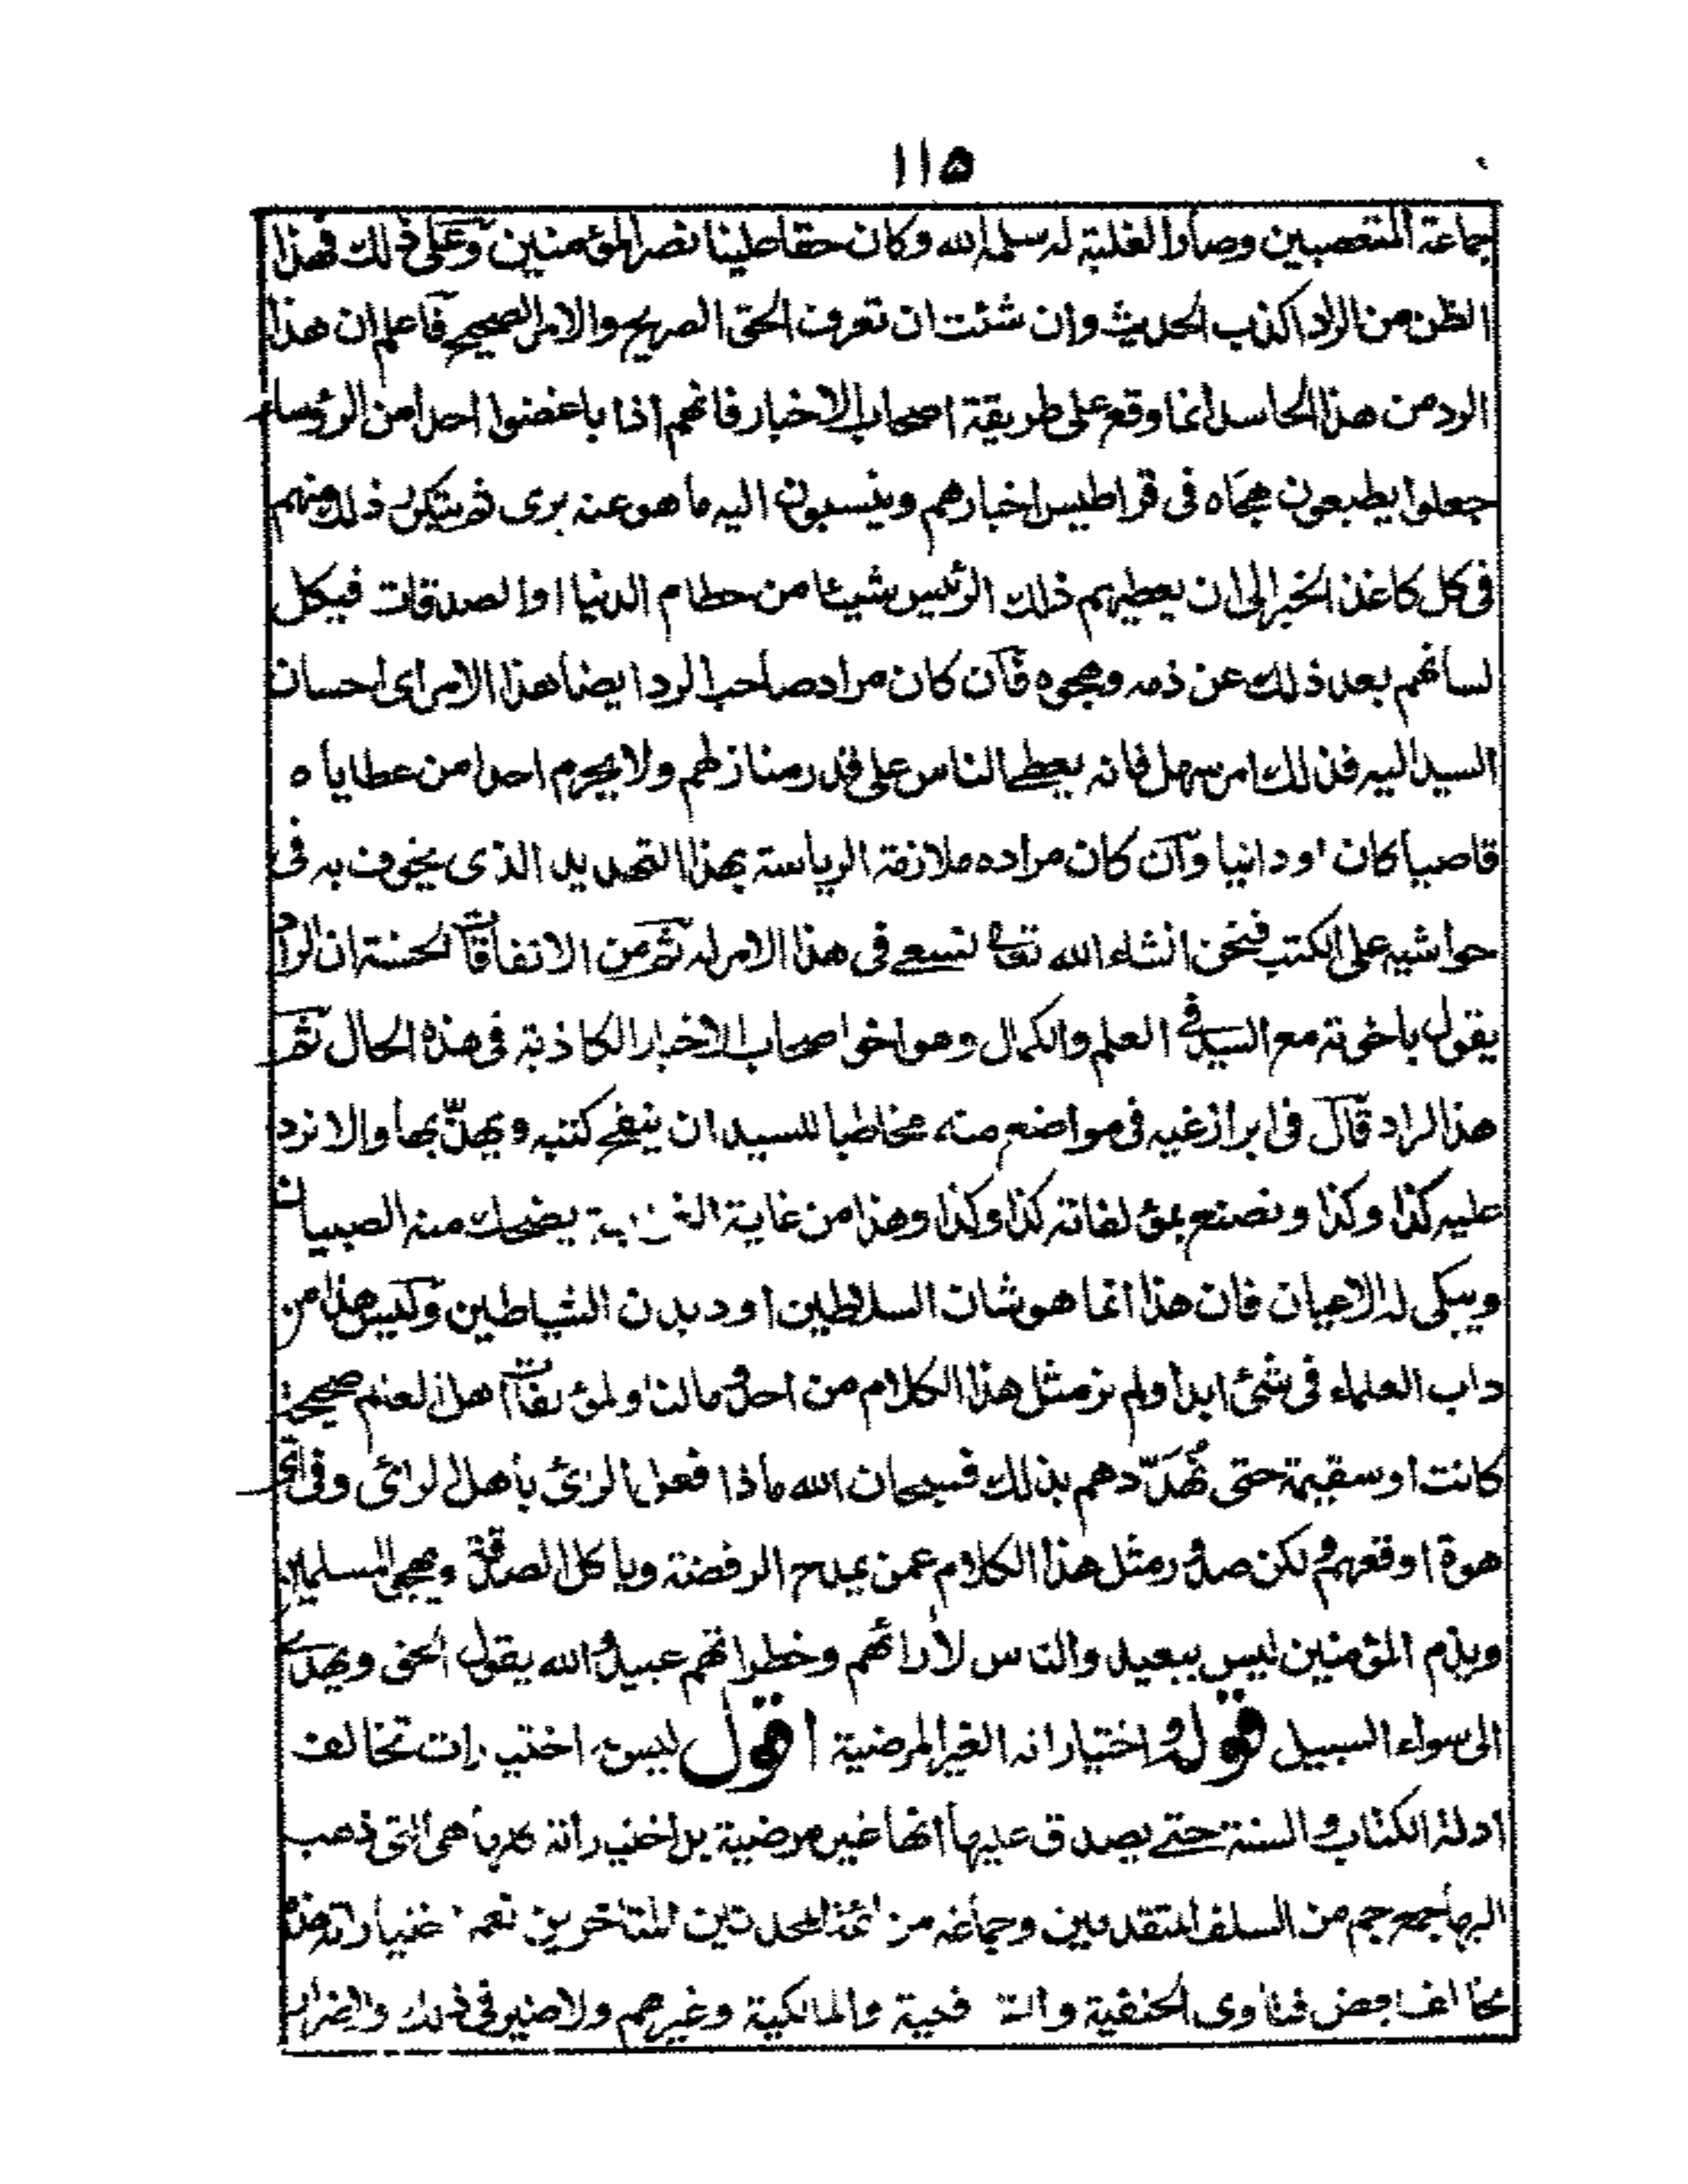 ١١٥
جماعة المتعصبين وصارا لغلبة له سلمه الله وكان حقا علينا نصر المؤمنين وعلى ذلك فهذا
الظن من الراد اكذب الحديث وان شئت ان تعرف الحق الصريح والامر الصحيح فاعلم ان هذا
الرد من هذا الحاسد انما وقع على طريقة اصحاب الاخبار فانهم اذا باغضوا احدا من الرؤساء
جعلوا يطبعون هجاه في قراطيس اخبارهم وينسبون اليه ما هو عنه برى ثم يتكرر ذلك منهم
في كل كاغذ الخبر الى ان يعطيهم ذلك الرئيس شيئا من حطام الدنيا او الصدقات فيكل
لسانهم بعد ذلك عن ذمه وهجوه فان كان مراد صاحب الرد ايضا هذا الامر اى احسان
السيد اليه فذلك امر سهل فانه يعطى الناس على قدر منازلهم ولا يحرم احدا من عطاياه
قاصيا كان او دانيا وان كان مراده ملازمة الرياسة بهذا التهديد الذى يخوف به في
حواشيه على الكتب فنحن انشاء الله تعالى نسعى في هذا الامر له ثم من الاتفاقات الحسنة ان الراد
يقول باخوته مع السيد في العلم والكمال وهو اخو اصحاب الاخبار الكاذبة في هذه الحال ثم
هذا الراد قال في ابراز غيه في مواضع منه مخاطبا للسيد ان ينقح كتبه ويهذبها والا نرد
عليه كذا وكذا ونصنع بمؤلفاته كذا وكذا وهذا من غاية يضحك منه الصبيان
ويبكى له الاعيان فان هذا انما هو شان السلاطين او ديدن الشياطين وليس هذا من
داب العلماء في شئ ابدا ولم نر مثل هذا الكلام من احد وما لنا ولمؤلفات اهل العلم صحيحة
كانت او سقيمة حتى نهددهم بذلك فسبحان الله ماذا فعل الرئ باهل الرائ وفى اى
هوة اوقعهم ولكن صدور مثل هذا الكلام عمن يمدح الرفضة وياكل الصدقة ويهجى المسلمين
ويذم المؤمنين ليس ببعيد والناس لأرائهم وخطراتهم عبيد والله يقول الحق ويهدى
الى سواء السبيل قوله واختياراته الغير المرضية اقول ليس له اختيارات تخالف
ادلة الكتاب والسنة حتى يصدق عليها انها غير مرضية بل اختياراته كلها هى التى ذهب
اليها جمع جم من السلف المتقدمين وجماعة من ائمة المحدثين المتاخرين نعم اختياراته هذه
تخالف بعض فتاوى الحنفية والشافعية والمالكية وغيرهم ولا ضير في ذلك